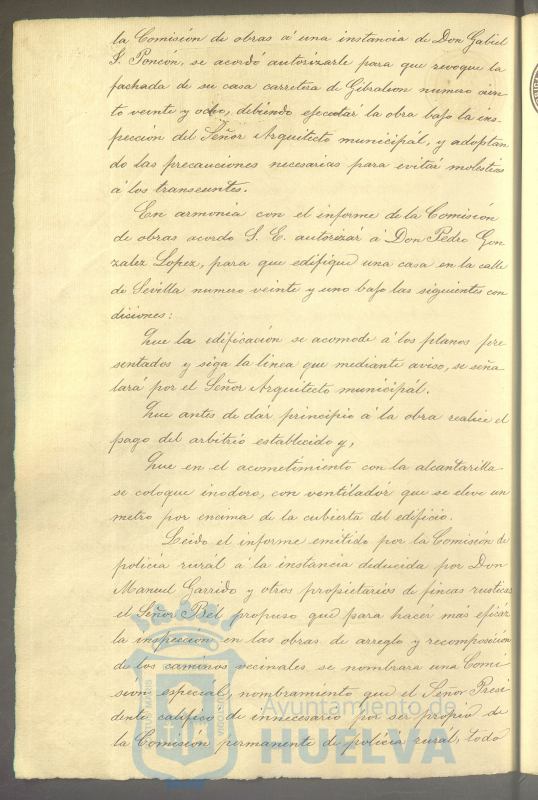 la Comisión de obras á una instancia de Don Gabiel
S. Ponción, se acordó autorizarle para que revoque la
fachada de su casa carretera de Gibraleon numero cien
to veinte y ocho, debiendo ejecutar la obra bajo la ins-
pección del Señor Arquitecto municipál, y adoptan
do las precauciones necesarias para evitar molestias
á los transeuntes.
En armonia con el informe de la Comisión
de obras acordo S. E. autorizár á Don Pedro Gon
zalez Lopez, para que edifique una casa en la calle
de Sevilla numero veinte y uno bajo las siguientes con
diciones:
Que la edificación se acomode á los planos pre
sentados y siga la linea que mediante aviso, se seña
lará por el Señor Arquitecto municipál.
Que antes de dár principio á la obra realice el
pago del arbitrio establecido y,
Que en el acometimiento con la alcantarilla
se coloque inodoro, con ventiladór que se eleve un
metro por encima de la cubierta del edificio.
Leido el informe emitido por la Comisión de
policia rurál á la instancia deducida por Don
Manuel Garrido y otros propietarios de fincas rusticas
el Señor Bel propuso que para hacér más eficáz
la inspección en las obras de arreglo y recomposición
de los caminos vecinales se nombrara una Comi
sión especiál, nombramiento que el Señor Presi
dente calificó de innecesario por ser propio de
la Comisión permanente de policia rurál, todo
Ayuntamiento de
HUELVA